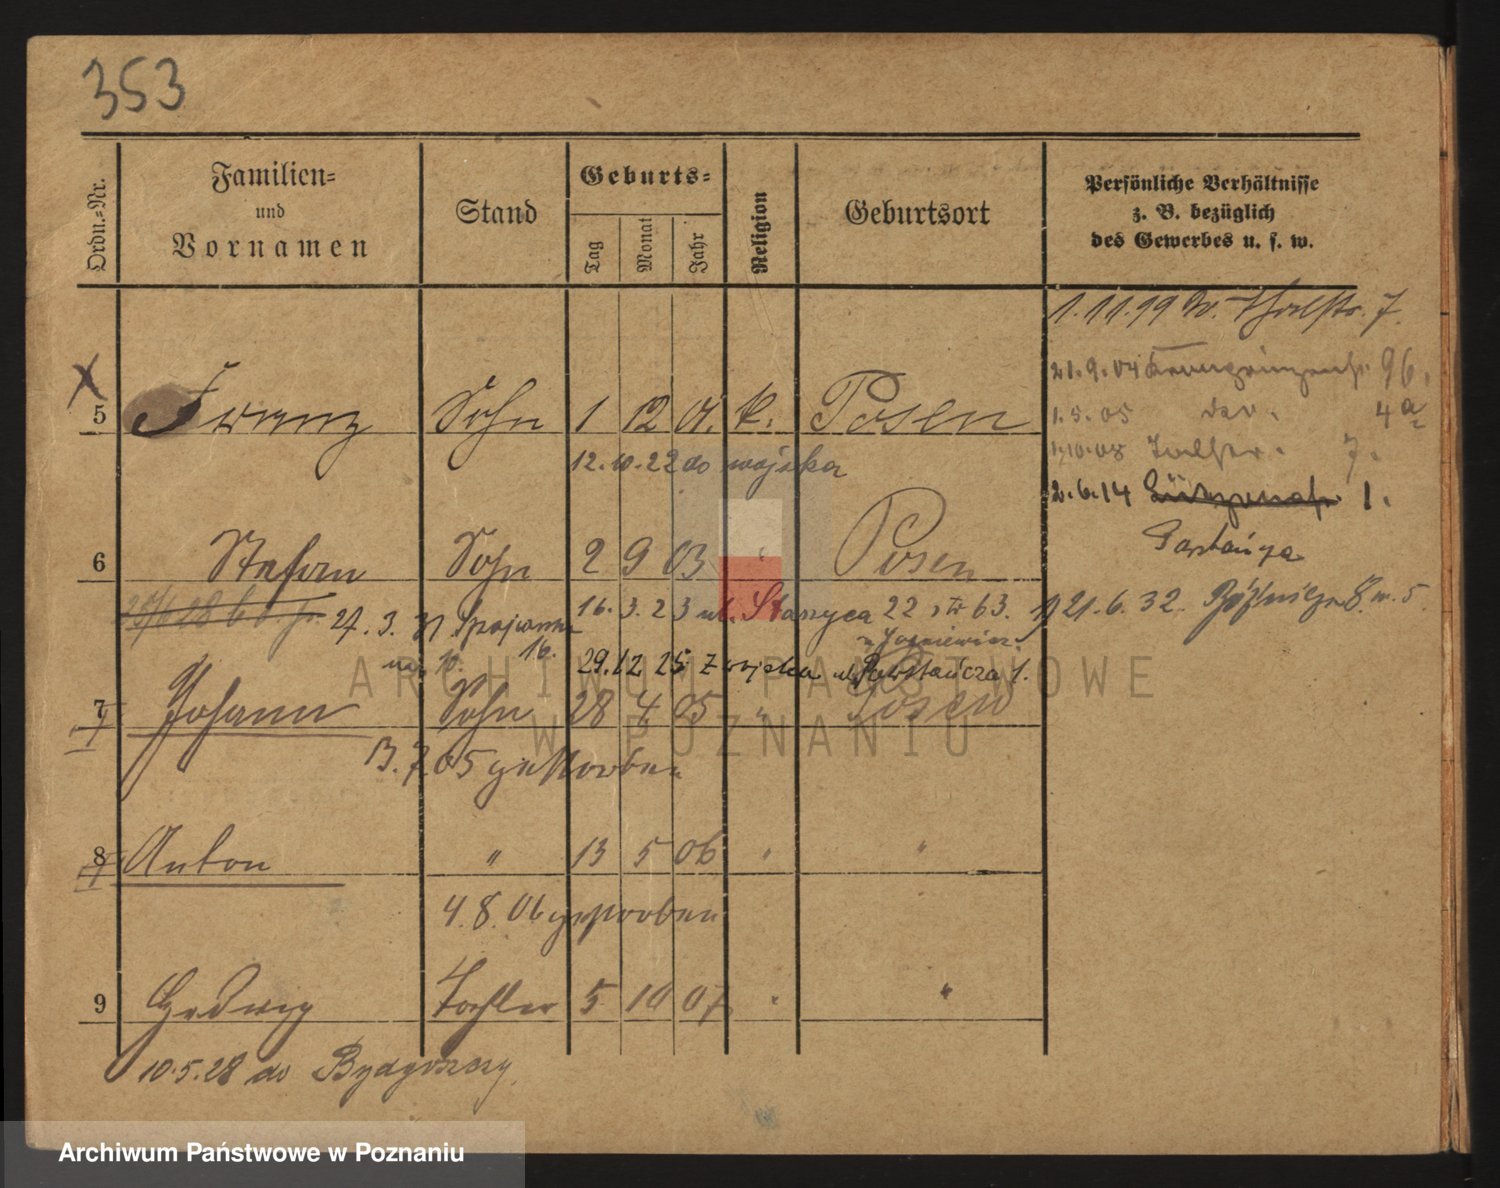 353
Ordn.-Nr.
Familien-
und
Vornamen
Stand
Geburts-
Tag
Monat
Jahr
Religion
Geburtsort
Persönliche Verhältnisse
z. B. bezüglich
des Gewerbes u. s. w.
1. 11. 99 7.
21.9.04 96.
1.5.05 4a
5 Franz Sohn 1 12 01. k. Posen
1.10.08 7.
12.10.22 do wojska
2.6.14 1.
6 Stefan Sohn 2 9 03 " Posen
16. 3. 23 ul. Staszyca 22 63.
21.6.32. 8 m. 5.
27. 3. 31
16.
29.12 25 z wojska ul. 1.
7 Johann Sohn 28 4 05 " Posen
13.7.05 gestorben
8 Anton " 13 5 06 " "
4.8.06 gestorben
9 Hedwig Tochter 5 10 07 " "
10.5.28 do Bydgoszczy
ARCHIWUM PAŃSTWOWE
W POZNANIU
Archiwum Państwowe w Poznaniu